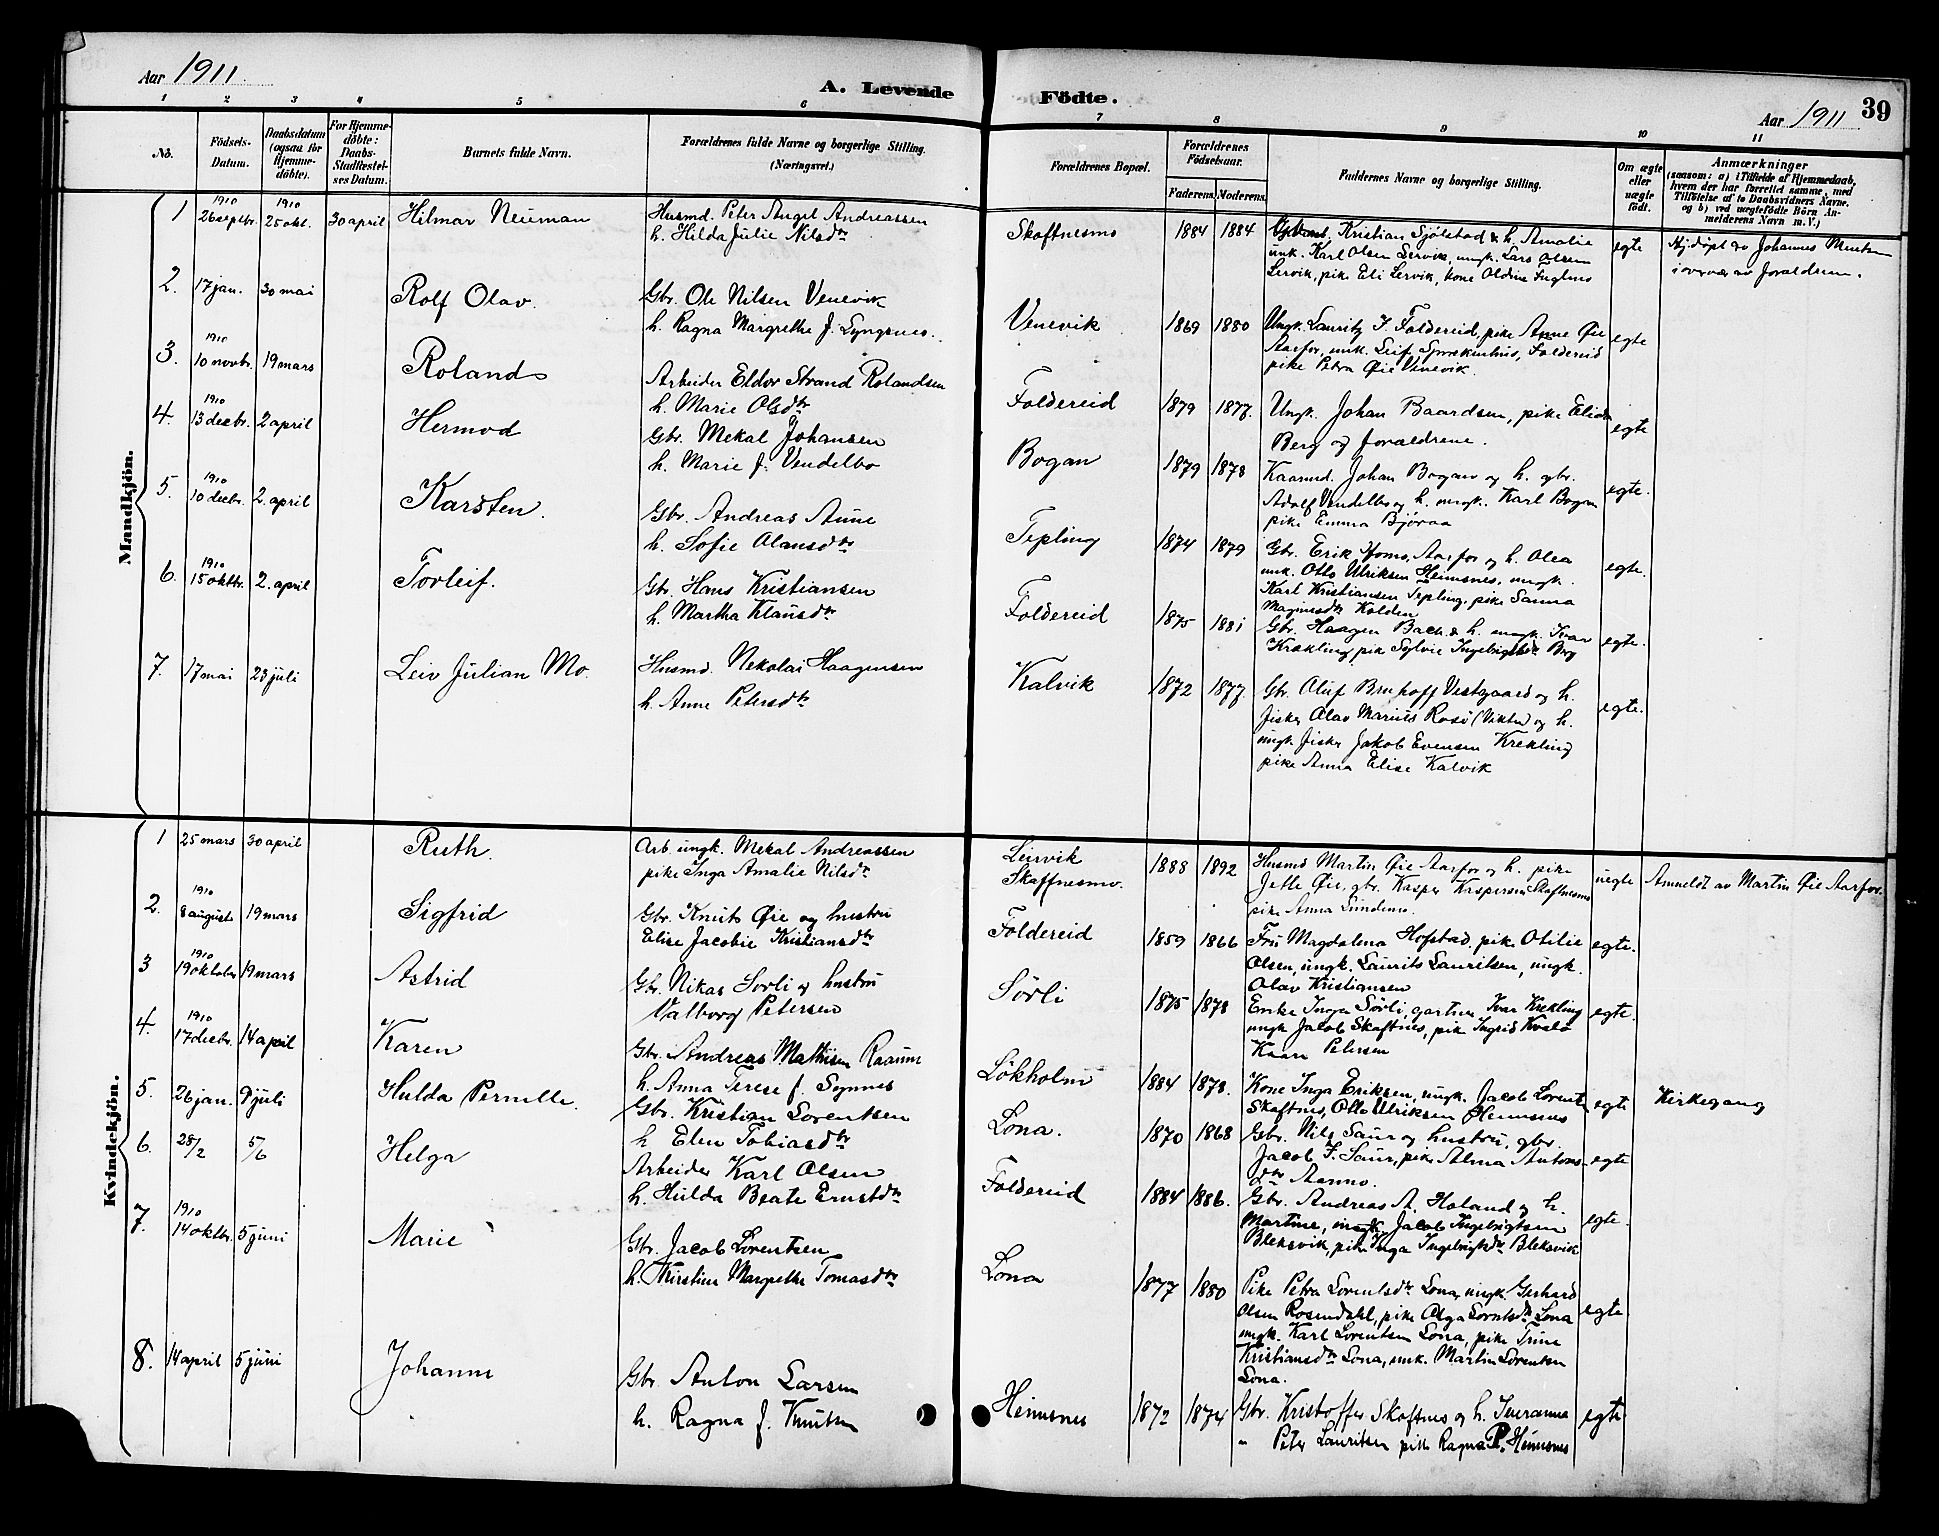 Aar 1911
A. Levende Födte.
Aar 1911 39
1 2 3 4 5 6 7 8 9 10 11
No.
Födsels-Datum.
Daabsdatum (ogsaa for Hjemme-döbte).
For Hjemme-döbte: Daabs-Stadfæstel-ses Datum.
Barnets fulde Navn.
Forældrenes fulde Navne og borgerlige Stilling. (Næringsvei.)
Forældrenes Bopæl.
Forældrenes Födselsaar.
Faderens. Moderens.
Faddernes Navne og borgerlige Stilling.
Om ægte eller uægte födt.
Anmærkninger (saasom: a) i Tilfælde af Hjemmedaab, hvem der har forrettet samme, med Tilföielse af to Daabsvidners Navne, og b) ved uægtefödte Börn An-melderens Navn m. V.)
Mandkjön.
1 1910 26 septbr. 1910 25 okt. 30 april Hilmar Neuman
Husmd. Peter Angel Andreassen
h. Hilda Julie Nilsdtr
Skaftnesmo 1884 1884
Kristian Sjølstad & h. Amalie
unk. Karl Olsen Lervik, ungk. Lars Olsen
Lervik, pike Eli Lervik, kone Oldine Fuglnes
egte
Hj.døpt av Johannes
i overvær av foraldrene.
2. 17 jan. 30 mai Rolf Olav.
Gbr. Ole Nilsen Venevik
h. Ragna Margrethe f. Lyngsnes.
Venevik 1869 1880
Ungk. Lauritz I. Foldereid, pike Anne Øie
Aarfor, unk. Leif Sprækenhus, Foldereid
pike Petra Øie Venevik.
egte
3. 1910 10 novbr. 19 mars Roland
Arbeider Eldor Strand Rolandsen
h. Marie Olsdtr
Foldereid 1879 1877.
Ungk. Johan Baardsen, pike
Berg og foraldrene.
egte
4. 1910 13 decbr. 2 april Hermod
Gbr. Mekal Johansen
h. Marie f. Vendelbo
Bogan 1879 1878
Kaarmd. Johan Bogan og h. gbr.
Adolf Vendelbo og h. ungk. Karl Bogan
pike Emma Bjøraa
egte.
5. 1910 10 decbr. 2. april Karsten.
Gbr. Andreas Aune
h. Sofie Olausdtr
Tepling 1874 1879
Gbr. Erik Homo, Aarfor og h. Olea
unk. Otto Ulriksen Heimsnes, ungk.
Karl Kristiansen Tepling, pike Sanna
Magnusdtr Kolden.
egte.
6. 1910 15 oktbr. 2. april Torleif.
Gbr. Hans Kristiansen
h. Martha Klausdtr
Foldereid 1875 1881
Gbr. Haagen Bach & h. ungk. Ivar
Krækling pik Sylvie Ingebrigtsdtr Berg
egte.
7. 17 mai 23 juli Leiv Julian Mo.
Husmd. Nekolai Haagensen
h. Anne Petersdtr
Kalvik 1872 1877.
Gbr. Oluf Bruhoff Vestgaard og h.
fisker Olav Marius Rosø (Vikten) og h.
ungk. fisker Jakob Evensen Krekling
pike Anna Elise Kalvik
egte.
Kvindekjön.
1 25 mars 30 april Ruth.
Arb. ungk. Mekal Andreassen
pike Inga Amalie Nilsdtr
Leirvik
Skaftnesmo. 1888 1892
Husmd Martin Øie Aarfor og h. pike
Jette Øie, gbr. Kasper Kaspersen Skaftnesmo
pike Anna Lundemo.
uegte
Anmeldt av Martin Øie Aarfor.
2. 1910 8 august 19 mars Sigfrid
Gbr. Knut Øie og hustru
Elise Jacobie Kristiansdtr
Foldereid 1859 1866
Fru Magdalena Hofstad, pik Otilie
Olsen, ungk. Laurits Lauritsen, ungk.
Olav Kristiansen
egte.
3 1910 19 oktober 19 mars Astrid
Gbr. Nikas Sørli og hustru
Valborg Petersen
Sørli 1875 1878
Enke Inga Sørli, gartner Ivar Krekling
ungk Jacob Skaftnes, pik Ingrid Kvalø
Kaare Petersen
egte.
4. 1910 17 decbr. 14 april Karen
Gbr. Andreas Mathisen Raaum
h. Anna Terese f. Sognnes
Løkholm 1884 1878.
Kone Inga Eriksen, ungk. Jacob Lorents
Skaftnes, Otto Ulriksen Heimsnes
egte
Kirkegang
5. 26 jan. 9 juli Hulda Pernille.
Gbr. Kristian Lorentsen
h Elen Tobiasdtr
Lona. 1870 1868
Gbr. Nils Saur og hustru, gbr.
Jacob I. Saur, pik Alma Antons-
dtr Aanno.
egte
6. 28/2 5/6 Helga
Arbeider Karl Olsen
h. Hulda Beate Ernstdtr
Foldereid 1884 1886.
Gbr. Andreas A. Haland og h.
Martine, ungk Jacob Ingebrigtsen
Bleksvik, pik Inga Ingebrigtsdtr Bleksvik
egte.
7. 1910 14 oktbr. 5 juni Marie
Gbr. Jacob Lorentsen
h. Kirstine Margrethe Tomasdtr
Lona 1877 1880
Pike Petra Lorentsdtr Lona, ungk. Gerhard
Olsen Rosendahl, pike Olga Lorntsdtr Lona
ungk. Karl Lorentsen Lona, pike Trine
Kristiansdtr Lona, unk. Martin Lorentsen
Lona.
egte
8. 14 april 5 juni Johanne
Gbr. Anton Larsen
h. Ragna f. Knutsen
Heimsnes 1872 1874
Gbr. Kristoffer Skaftnes og h. Iveranna
" Peter Lauritsen pik Ragna P. Heimsnes
egte